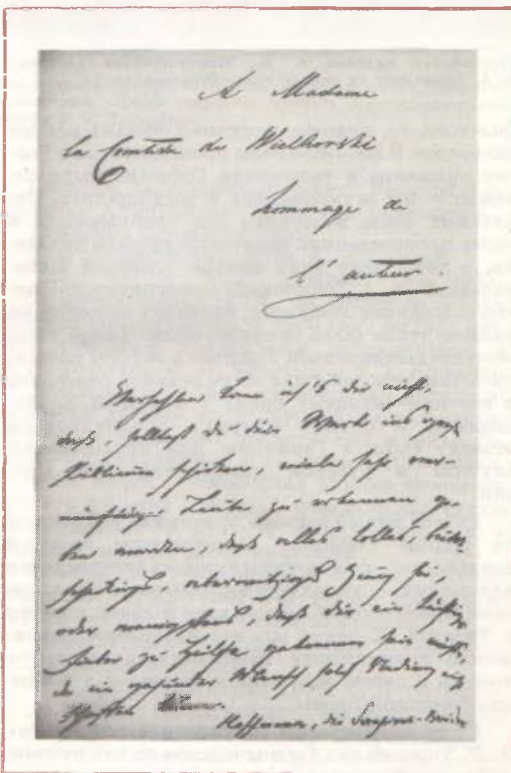 A Madame
la Comtesse de Wielhorski
hommage de
l'auteur.
Verhehlen kann ich's dir nicht,
daß, solltest du dein Werk ins
Publikum schicken, viele sehr ver-
nünftige Leute zu erkennen ge-
ben werden, daß alles tolles,
Zeug sei,
oder wenigstens, daß dir ein
Fieber zu Hülfe gekommen sein
da ein gesunder Mensch solch
schaffen
Hoffmann, die Serapions-Brüder